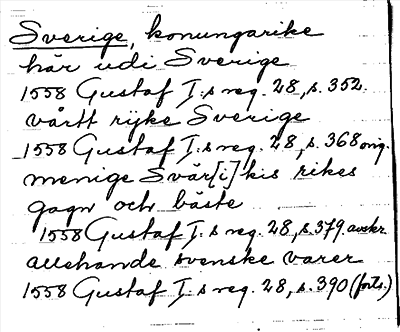 Sverige, konungarike
här udi Sverige
1558 Gustaf I:s reg. 28, s. 352.
vårtt rijke Sverige
1558 Gustaf I:s reg. 28, s. 368 orig.
menige Svär[i]kis rikes
gagn och bäste
1558 Gustaf I:s reg. 28, s. 379 avskr.
allehande svenske varer
1558 Gustaf I:s reg. 28, s. 390 (forts.)